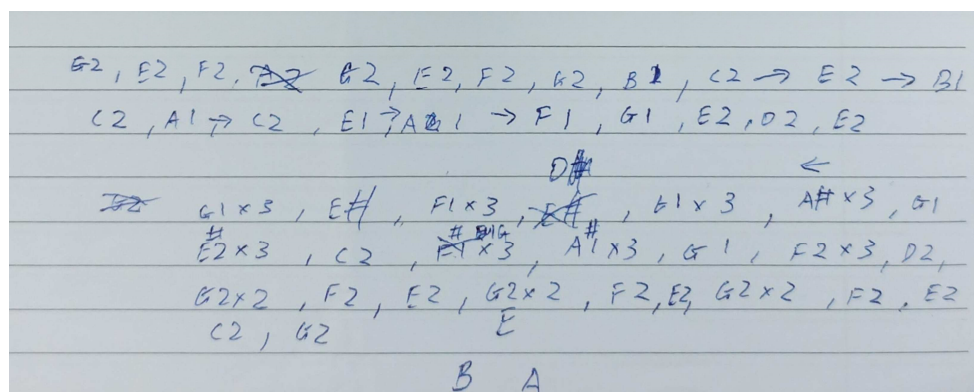 G2, E2, F2, G2, E2, F2, G2, B1, C2 → E2 → B1
C2, A1 → C2, E1, A1 → F1, G1, E2, D2, E2
D# ←
G1 x 3, E#, F1 x 3, E#, G1 x 3, A# x 3, G1
# # #
E2 x 3, C2, F1 x 3, A1 x 3, G1, F2 x 3, D2,
G2 x 2, F2, E2, G2 x 2, F2, E2, G2 x 2, F2, E2
C2, G2 E
B A